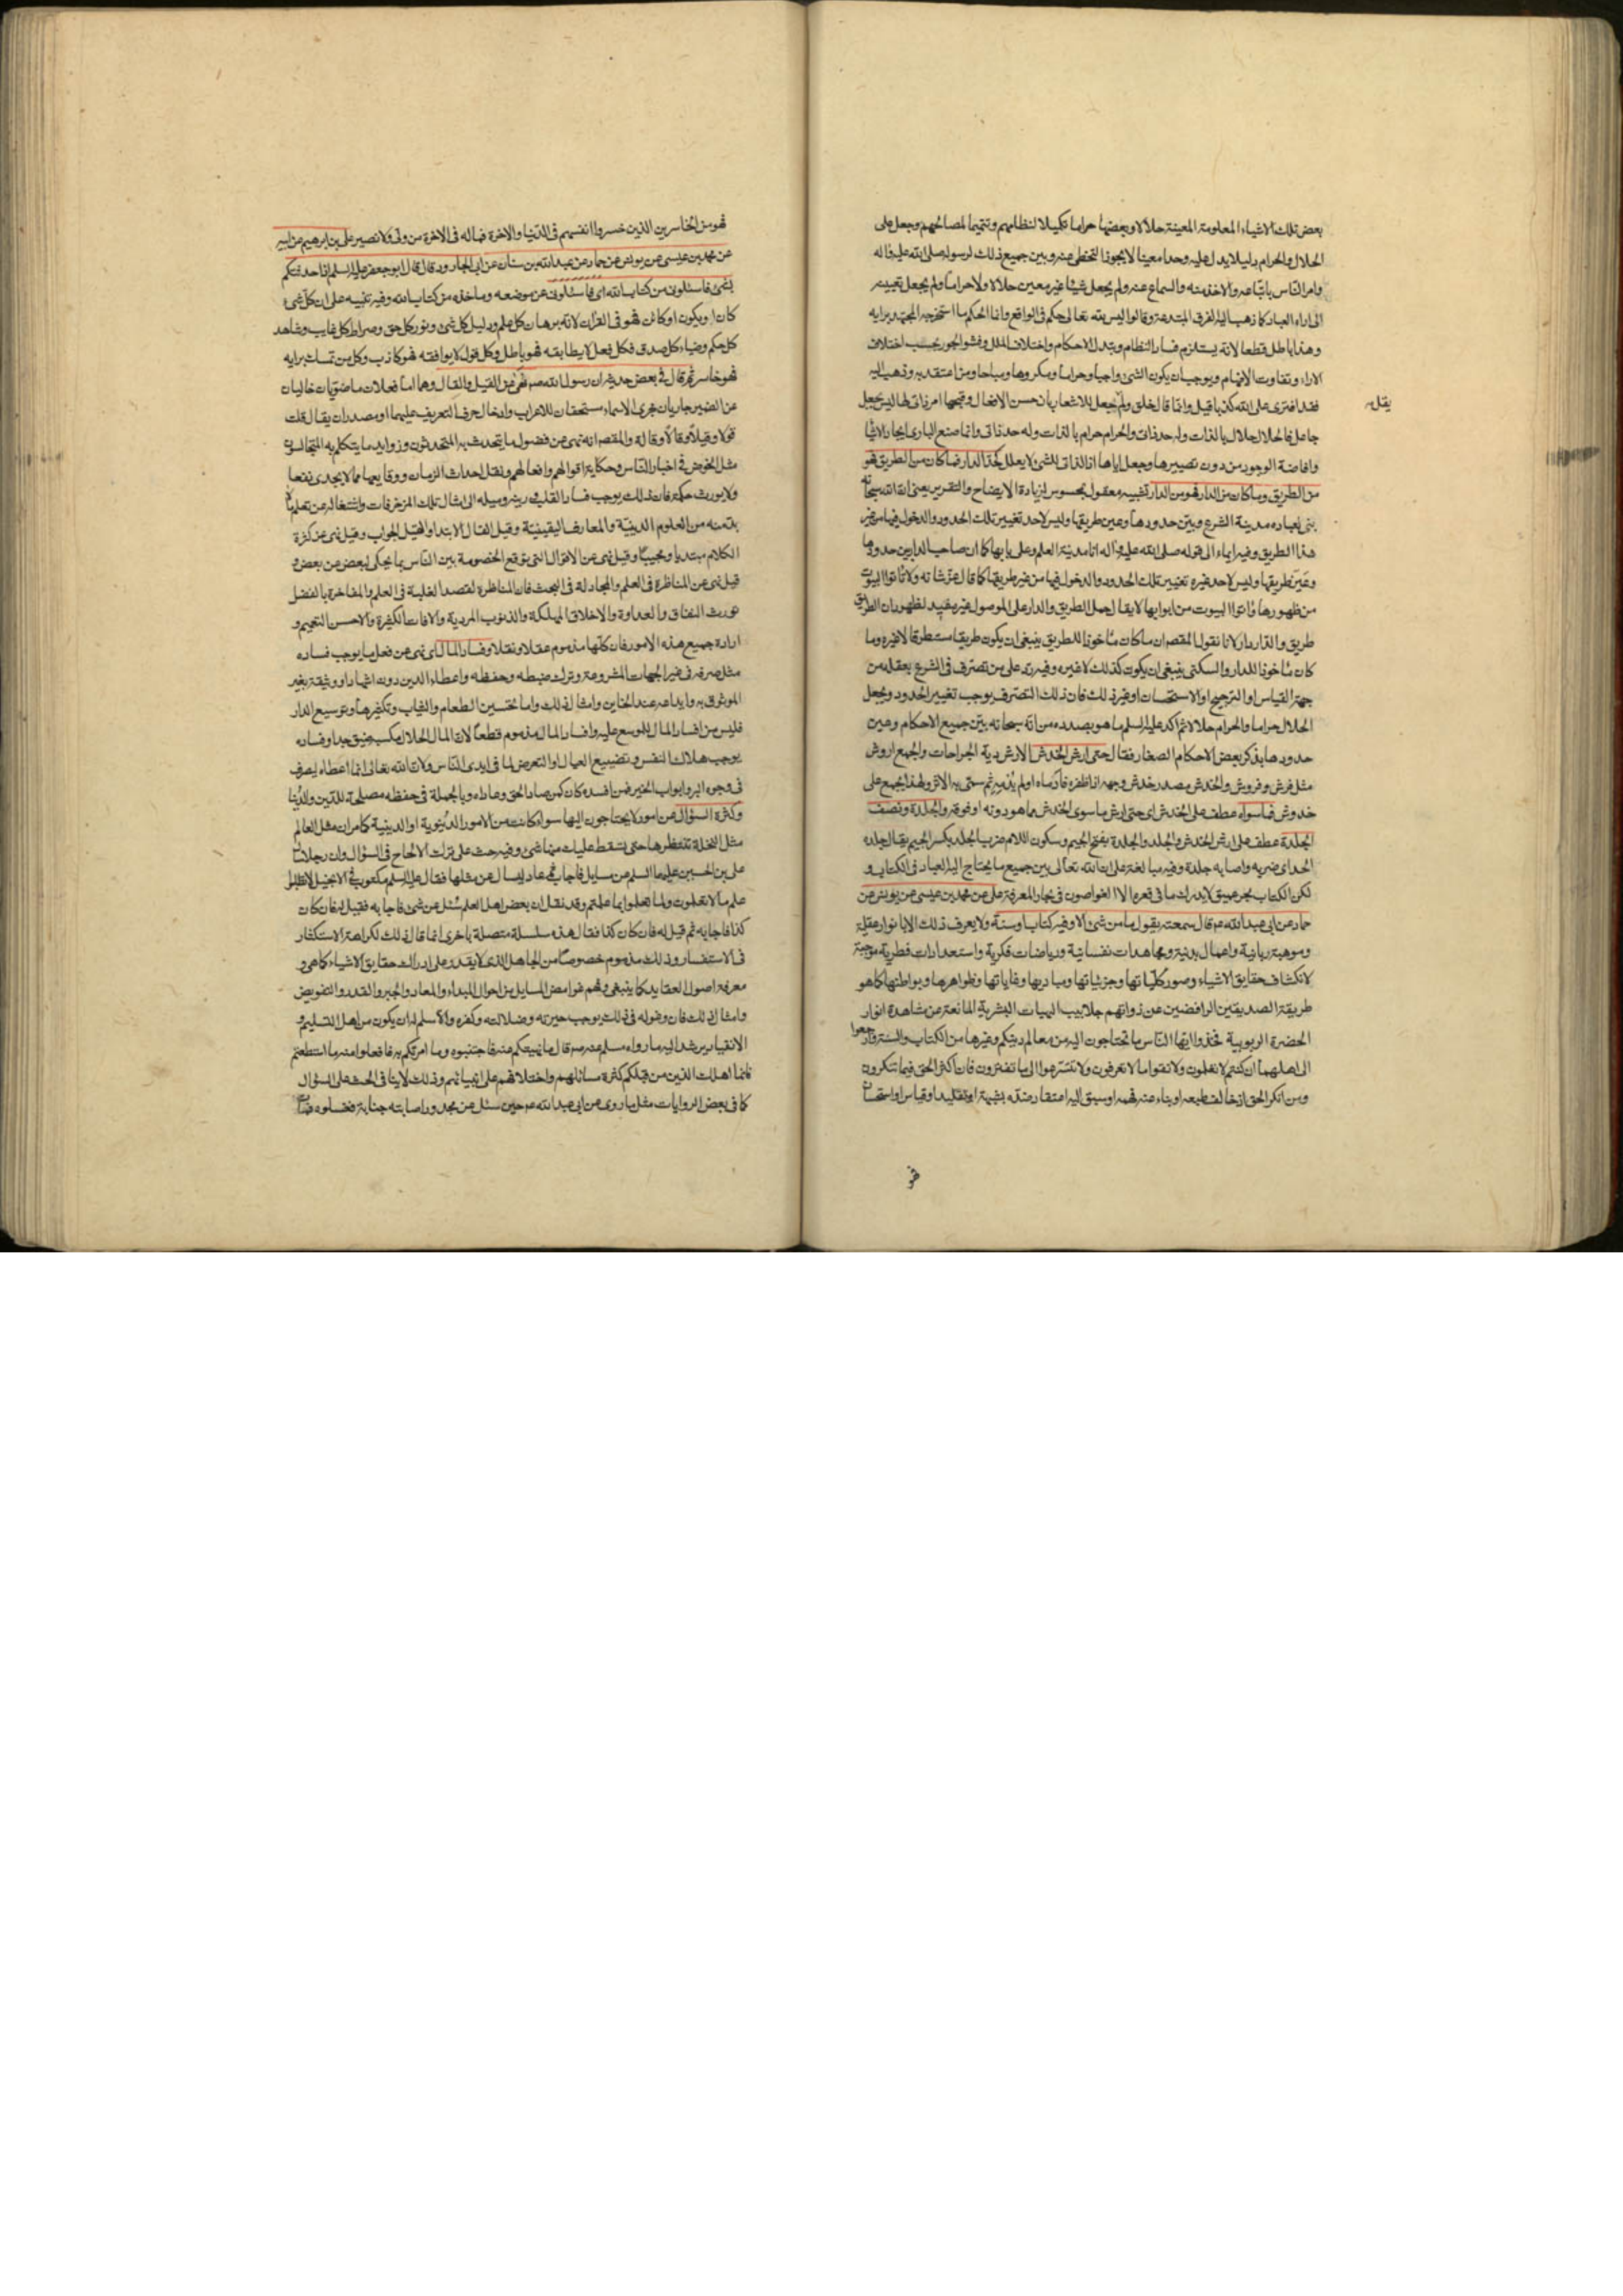 بعض تلك الاشياء المعلومة المعينة حلالا وبعضها حراما تكميلا لنظامهم وتتميما لمصالحهم وجعل على
الحلال والحرام دليلا يدل عليه وحدا معينا لا يجوز التخطى عنه وبين جميع ذلك لرسوله صلى الله عليه واله
وامر الناس باتباعه والاخذ منه والسماع عنه ولم يجعل شيئا غير معين حلالا ولا حراما ولم يجعل تعيينه
الى اراء العباد كما ذهب اليه الفرق المبتدعة وقالوا ليس لله تعالى حكم فى الواقع وانما الحكم ما استخرجه المجتهد برايه
وهذا باطل قطعا لانه يستلزم فساد النظام وتبدل الاحكام واختلاف الملل وفشو الجور بحسب اختلاف
الاراء وتفاوت الافهام ويوجب ان يكون الشىء واجبا وحراما ومكروها ومباحا ومن اعتقد به وذهب اليه
فقد افترى على الله كذبا قيل وانما قال خلق ولم يجعل للاشعار بان حسن الافعال وقبحها امر ذاتى لها ليس بجعل
يقل
جاعل فالحلال حلال بالذات وله حد ذاتى والحرام حرام بالذات وله حد ذاتى وانما صنع البارى ايجاد الاشيا
وافاضة الوجود من دون تصييرها وجعل اياها اذ الذاتى للشىء لا يعلل كحد الدار فما كان من الطريق فهو
من الطريق وما كان من الدار فهو من الدار تشبيه معقول بمحسوس لزيادة الايضاح والتقرير يعنى ان الله سبحانه
بنى لعباده مدينة الشرع وبين حدودها وعين طريقها وليس لاحد تغيير تلك الحدود والدخول فيها من غير
هذا الطريق وفيه ايماء الى قوله صلى الله عليه واله انا مدينة العلم وعلى بابها كما ان صاحب الدار بين حدودها
وعين طريقها وليس لاحد غيره تغيير تلك الحدود والدخول فيها من غير طريقها كما قال عز شانه ولا تاتوا البيوت
من ظهورها واتوا البيوت من ابوابها لا يقال حمل الطريق والدار على الموصول غير مفيد لظهور ان الطريق
طريق والدار دار لانا نقول المقصد ان ما كان ماخوذا للطريق ينبغى ان يكون طريقا مستطرقا لا غيره وما
كان ماخوذا للدار والسكنى ينبغى ان يكون كذلك لا غيره وفيه رد على من تصرف فى الشرع بعقله من
جهة القياس او الترجيح او الاستحسان او غير ذلك فان ذلك التصرف يوجب تغيير الحدود ويجعل
الحلال حراما والحرام حلالا ثم اكد عليه السلم ما هو بصدده من انه سبحانه بين جميع الاحكام وعين
حدودها بذكر بعض الاحكام الصغار فقال حتى ارش الخدش الارش دية الجراحات والجمع اروش
مثل فرش وفروش والخدش مصدر خدش وجهه اذا ظفره فادماه او لم يدمه ثم سمى به الاثر ولهذا يجمع على
خدوش فما سواه عطف على الخدش اى حتى ارش ما سوى الخدش مما هو دونه او فوقه والجلدة ونصف
الجلدة عطف على ارش الخدش والجلد والجلدة بفتح الجيم وسكون اللام ضرب الجلد بكسر الجيم يقال جلده
الحد اى ضربه واصابه جلدة وفيه مبالغة على ان الله تعالى بين جميع ما يحتاج اليه العباد فى الكتاب و
لكن الكتاب بحر عميق لا يدرك ما فى قعره الا الغواصون فى بحار المعرفة على عن محمد بن عيسى عن يونس عن
حماد عن ابى عبدالله عم قال سمعته يقول ما من شىء الا وفيه كتاب او سنة ولا يعرف ذلك الا بانوار عقلية
وموهبة ربانية واعمال بدنية ومجاهدات نفسانية ورياضات فكرية واستعدادات فطرية موجبة
لانكشاف حقايق الاشياء وصور كلياتها وجزئياتها ومباديها وغاياتها وظواهرها وبواطنها كما هو
طريقة الصديقين الرافضين عن ذواتهم جلابيب الهيات البشرية المانعة من مشاهدة انوار
الحضرة الربوبية فخذوا ايها الناس ما تحتاجون اليه من معالم دينكم وغيرها من الكتاب والسنة وارجعوا
الى اهلهما ان كنتم لا تعلمون ولا تقولوا ما لا تعرفون ولا تتسرعوا الى ما تفترون فان اكثر الحق فيما تنكرون
ومن انكر الحق اذ خالف طبعه او نباء عنه فهمه او سبق اليه اعتقاد ضده بشبهة او تقليد او قياس او استحسان
فهو
فهو من الخاسرين الذين خسروا انفسهم فى الدنيا والاخرة فما له فى الاخرة من ولى ولا نصير على بن ابرهيم عن ابيه
عن محمد بن عيسى عن يونس عن حماد عن عبدالله بن سنان عن ابى الجارود قال قال ابو جعفر عليه السلم اذا حدثتكم
بشىء فاسئلونى من كتاب الله اى فاسئلونى عن موضعه وماخذه من كتاب الله وفيه تنبيه على ان كل شىء
كان او يكون او كائن فهو فى القران لانه برهان كل علم ودليل كل شىء ونور كل حق وصراط كل غايب وشاهد
كل حكم وضياء كل صدق فكل فعل لا يطابقه فهو باطل وكل قول لا يوافقه فهو كاذب وكل من تمسك برايه
فهو خاسر ثم قال فى بعض حديثه ان رسول الله صم نهى عن القيل والقال وهما اما فعلان ماضويان خاليان
عن الضمير جاريان مجرى الاسماء مستحقان للاعراب وادخال حرف التعريف عليهما او مصدران يقال قلت
قولا وقيلا وقالا وقالة والمقصد انه نهى عن فضول ما يتحدث به المتحدثون وزوايد ما يتكلم به المتجالسون
مثل الخوض فى اخبار الناس وحكاية اقوالهم وافعالهم ونقل احداث الزمان ووقايعها مما لا يجدى نفعا
ولا يورث حكمة فان ذلك يوجب فساد القلب ورينه وميله الى امثال تلك المزخرفات واشتغاله عن تعلم ما لا
بد منه من العلوم الدينية والمعارف اليقينية وقيل القال الابتداء والقيل الجواب وقيل نهى عن كثرة
الكلام مبتديا ومجيبا وقيل نهى عن الاقوال التى توقع الخصومة بين الناس بما يحكى لبعض عن بعض و
قيل نهى عن المناظرة فى العلم والمجادلة فى البحث فان المناظرة لقصد الغلبة فى العلم والمفاخرة بالفضل
يورث النفاق والعداوة والاخلاق المهلكة والذنوب المردية والافات الكثيرة والاحسن التعميم و
ارادة جميع هذه الامور فان كلها مذموم عقلا ونقلا وفساد المال اى نهى عن فعل ما يوجب فساده
مثل صرفه فى غير الجهات المشروعة وترك ضبطه وحفظه واعطاء الدين دون اشهاد او وثيقة بغير
الموثوق به وايداعه عند الخاين وامثال ذلك واما تحسين الطعام والثياب وتكثيرها وتوسيع الدار
فليس من افساد المال للموسع عليه وافساد المال مذموم قطعا لان المال الحلال مكسبه ضيق جدا وفساده
يوجب هلاك النفس وتضييع العيال او التعرض لما فى ايدى الناس ولان الله تعالى انما اعطاه ليصرف
فى وجوه البر وابواب الخير فمن افسده كان كمن صاد الحق وعاداه وبالجملة فى حفظه مصلحة للدين والدنيا
وكثرة السؤال عن امور لا يحتاجون اليها سواء كانت من الامور الدنيوية او الدينية كما مر ان مثل العالم
مثل النخلة تنتظرها حتى تسقط عليك منها شىء وفيه حث على ترك الالحاح فى السؤال وان رجلا سال
على بن الحسين عليهما السلم عن مسايل فاجاب ثم عاد ليسال عن مثلها فقال عليه السلم مكتوب فى الانجيل لا تطلبوا
علم ما لا تعلمون ولما تعملوا بما علمتم وقد نقل ان بعض اهل العلم سئل عن شىء فاجابه فقيل له فان كان
كذا فاجابه ثم قيل له فان كان كذا فقال هذه سلسلة متصلة باخرى انما قال ذلك لكراهة الاستكثار
فى الاستفسار وذلك مذموم خصوصا من الجاهل الذى لا يقدر على ادراك حقايق الاشياء كما هى و
معرفة اصول العقايد كما ينبغى وفهم غوامض المسايل من احوال المبداء والمعاد والجبر والقدر والتفويض
وامثال ذلك فان وغوله فى ذلك يوجب حيرته وضلالته وكفره والاسلم له ان يكون من اهل التسليم و
الانقياد يرشد اليه ما رواه مسلم عنه صم قال ما نهيتكم عنه فاجتنبوه وما امرتكم به فافعلوا منه ما استطعتم
فانما اهلك الذين من قبلكم كثرة مسائلهم واختلافهم على انبيائهم وذلك لا ينافى الحث على السؤال
كما فى بعض الروايات مثل ما روى عن ابى عبدالله عم حين سئل عن مجدور اصابته جنابة فغسلوه فمات